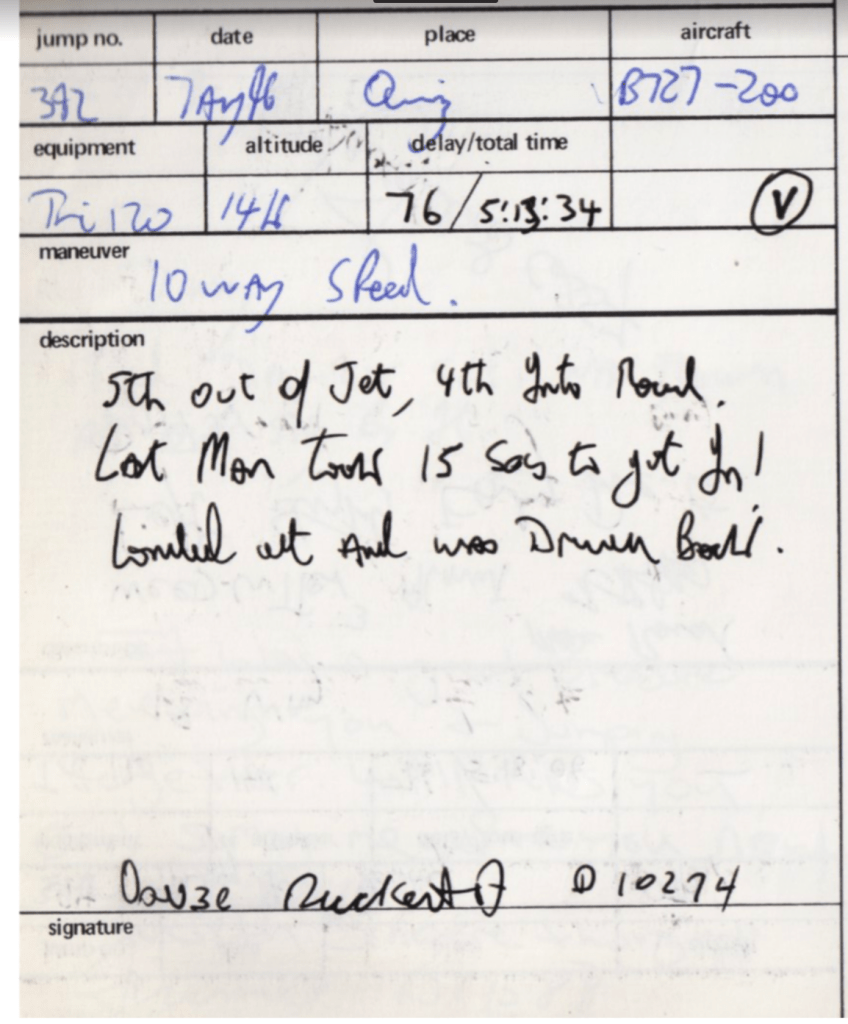 jump no. date place aircraft
342 7 Aug 96 Quincy B727-200
equipment altitude delay/total time
Tri 120 14k 76/5:13:34 V
maneuver
10 way Speed.
description
5th out of Jet, 4th Into Round.
Last Man Took 15 Secs to get In!
Landed out And was Driven Back.
Ruckert D 10274
signature